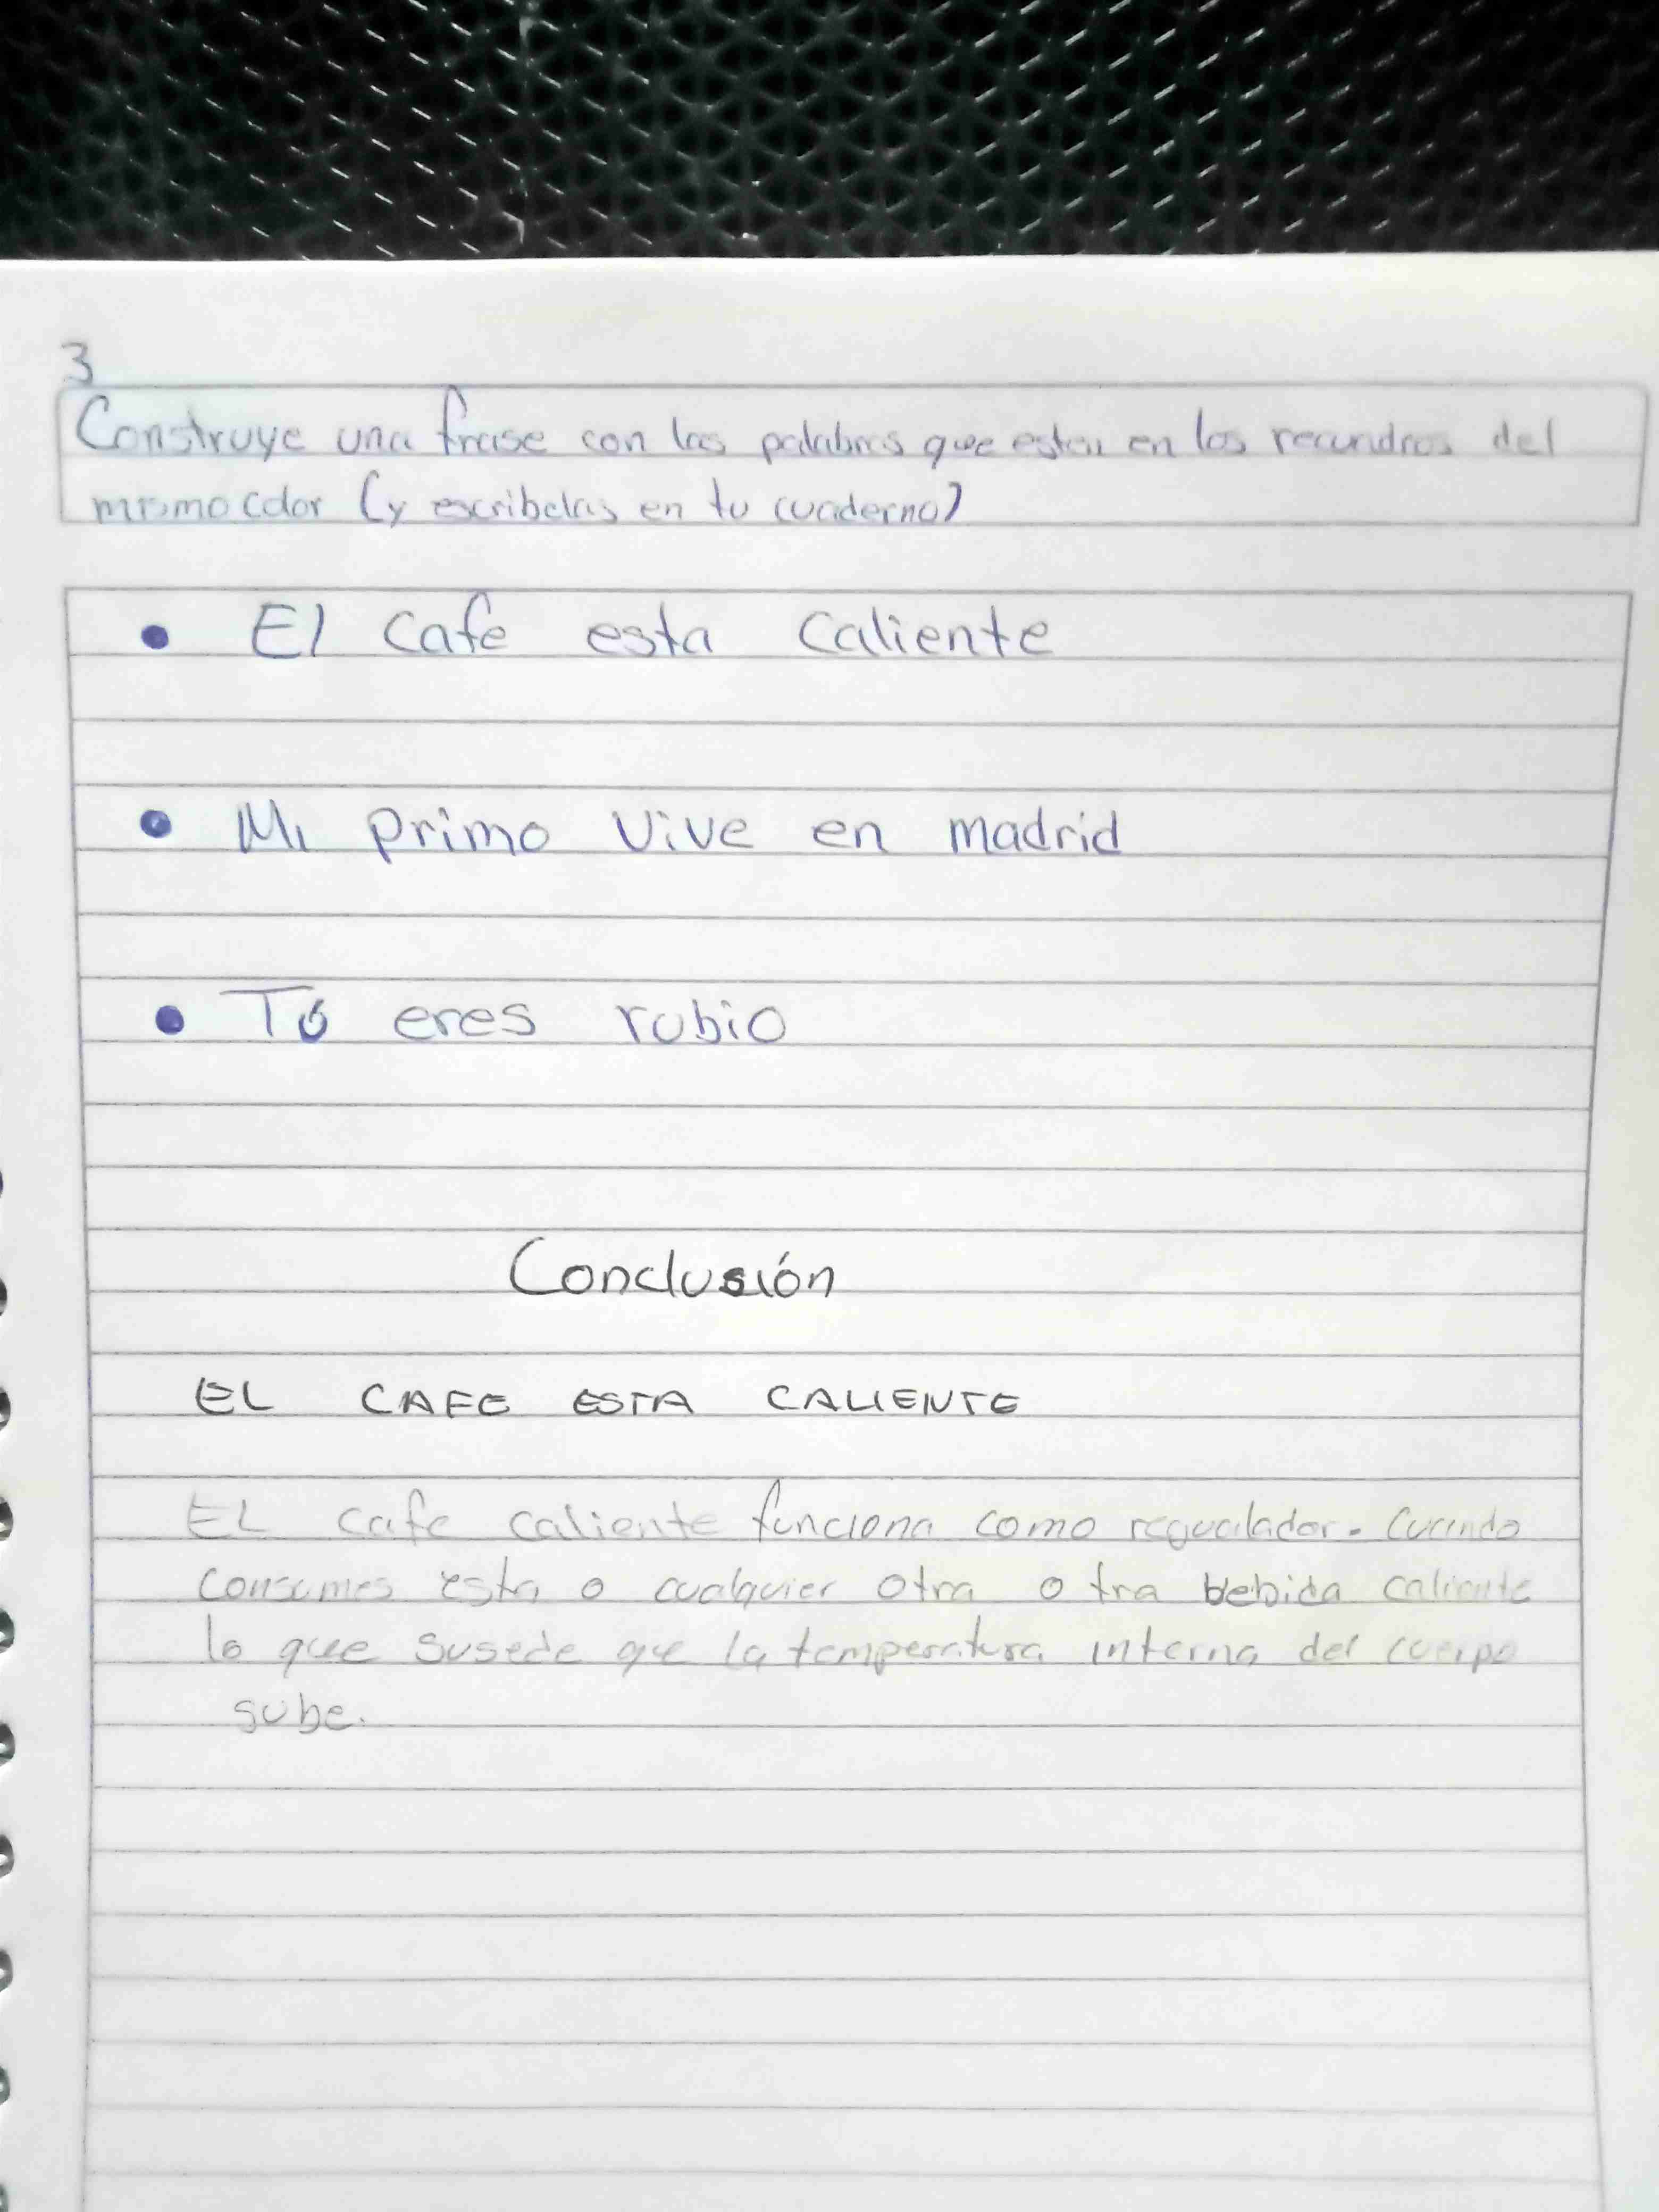 3
Construye una frase con las palabras que estan en los recundros del
mismo color (y escribelas en tu cuaderno)
• El cafe esta caliente
• Mi primo vive en madrid
• Tú eres rubio
Conclusión
EL CAFE ESTA CALIENTE
EL cafe caliente funciona como regualador. Cuando
consumes esta o cualquier otra o tra bebida caliente
lo que susede que la temperatura interna del cuerpo
sube.